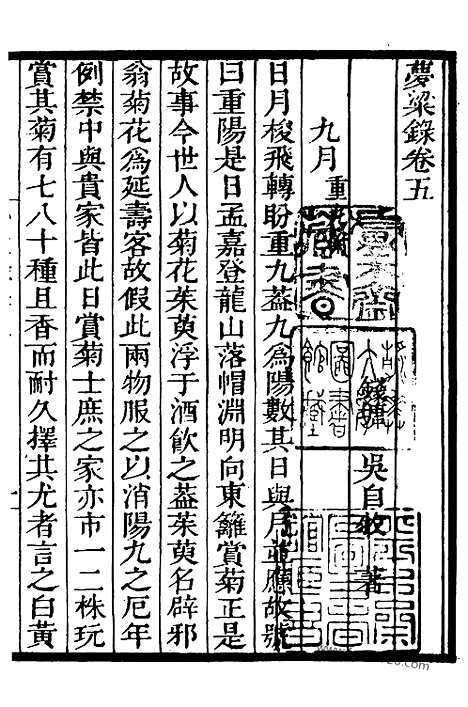 夢粱錄卷五
錢塘 吳自牧 著
九月 重九附
日月梭飛轉盼重九葢九為陽數其日與月並應故號
曰重陽是日孟嘉登龍山落帽淵明向東籬賞菊正是
故事今世人以菊花茱萸浮于酒飲之葢茱萸名辟邪
翁菊花為延壽客故假此兩物服之以消陽九之厄年
例禁中與貴家皆此日賞菊士庶之家亦市一二株玩
賞其菊有七八十種且香而耐久擇其尤者言之白黃